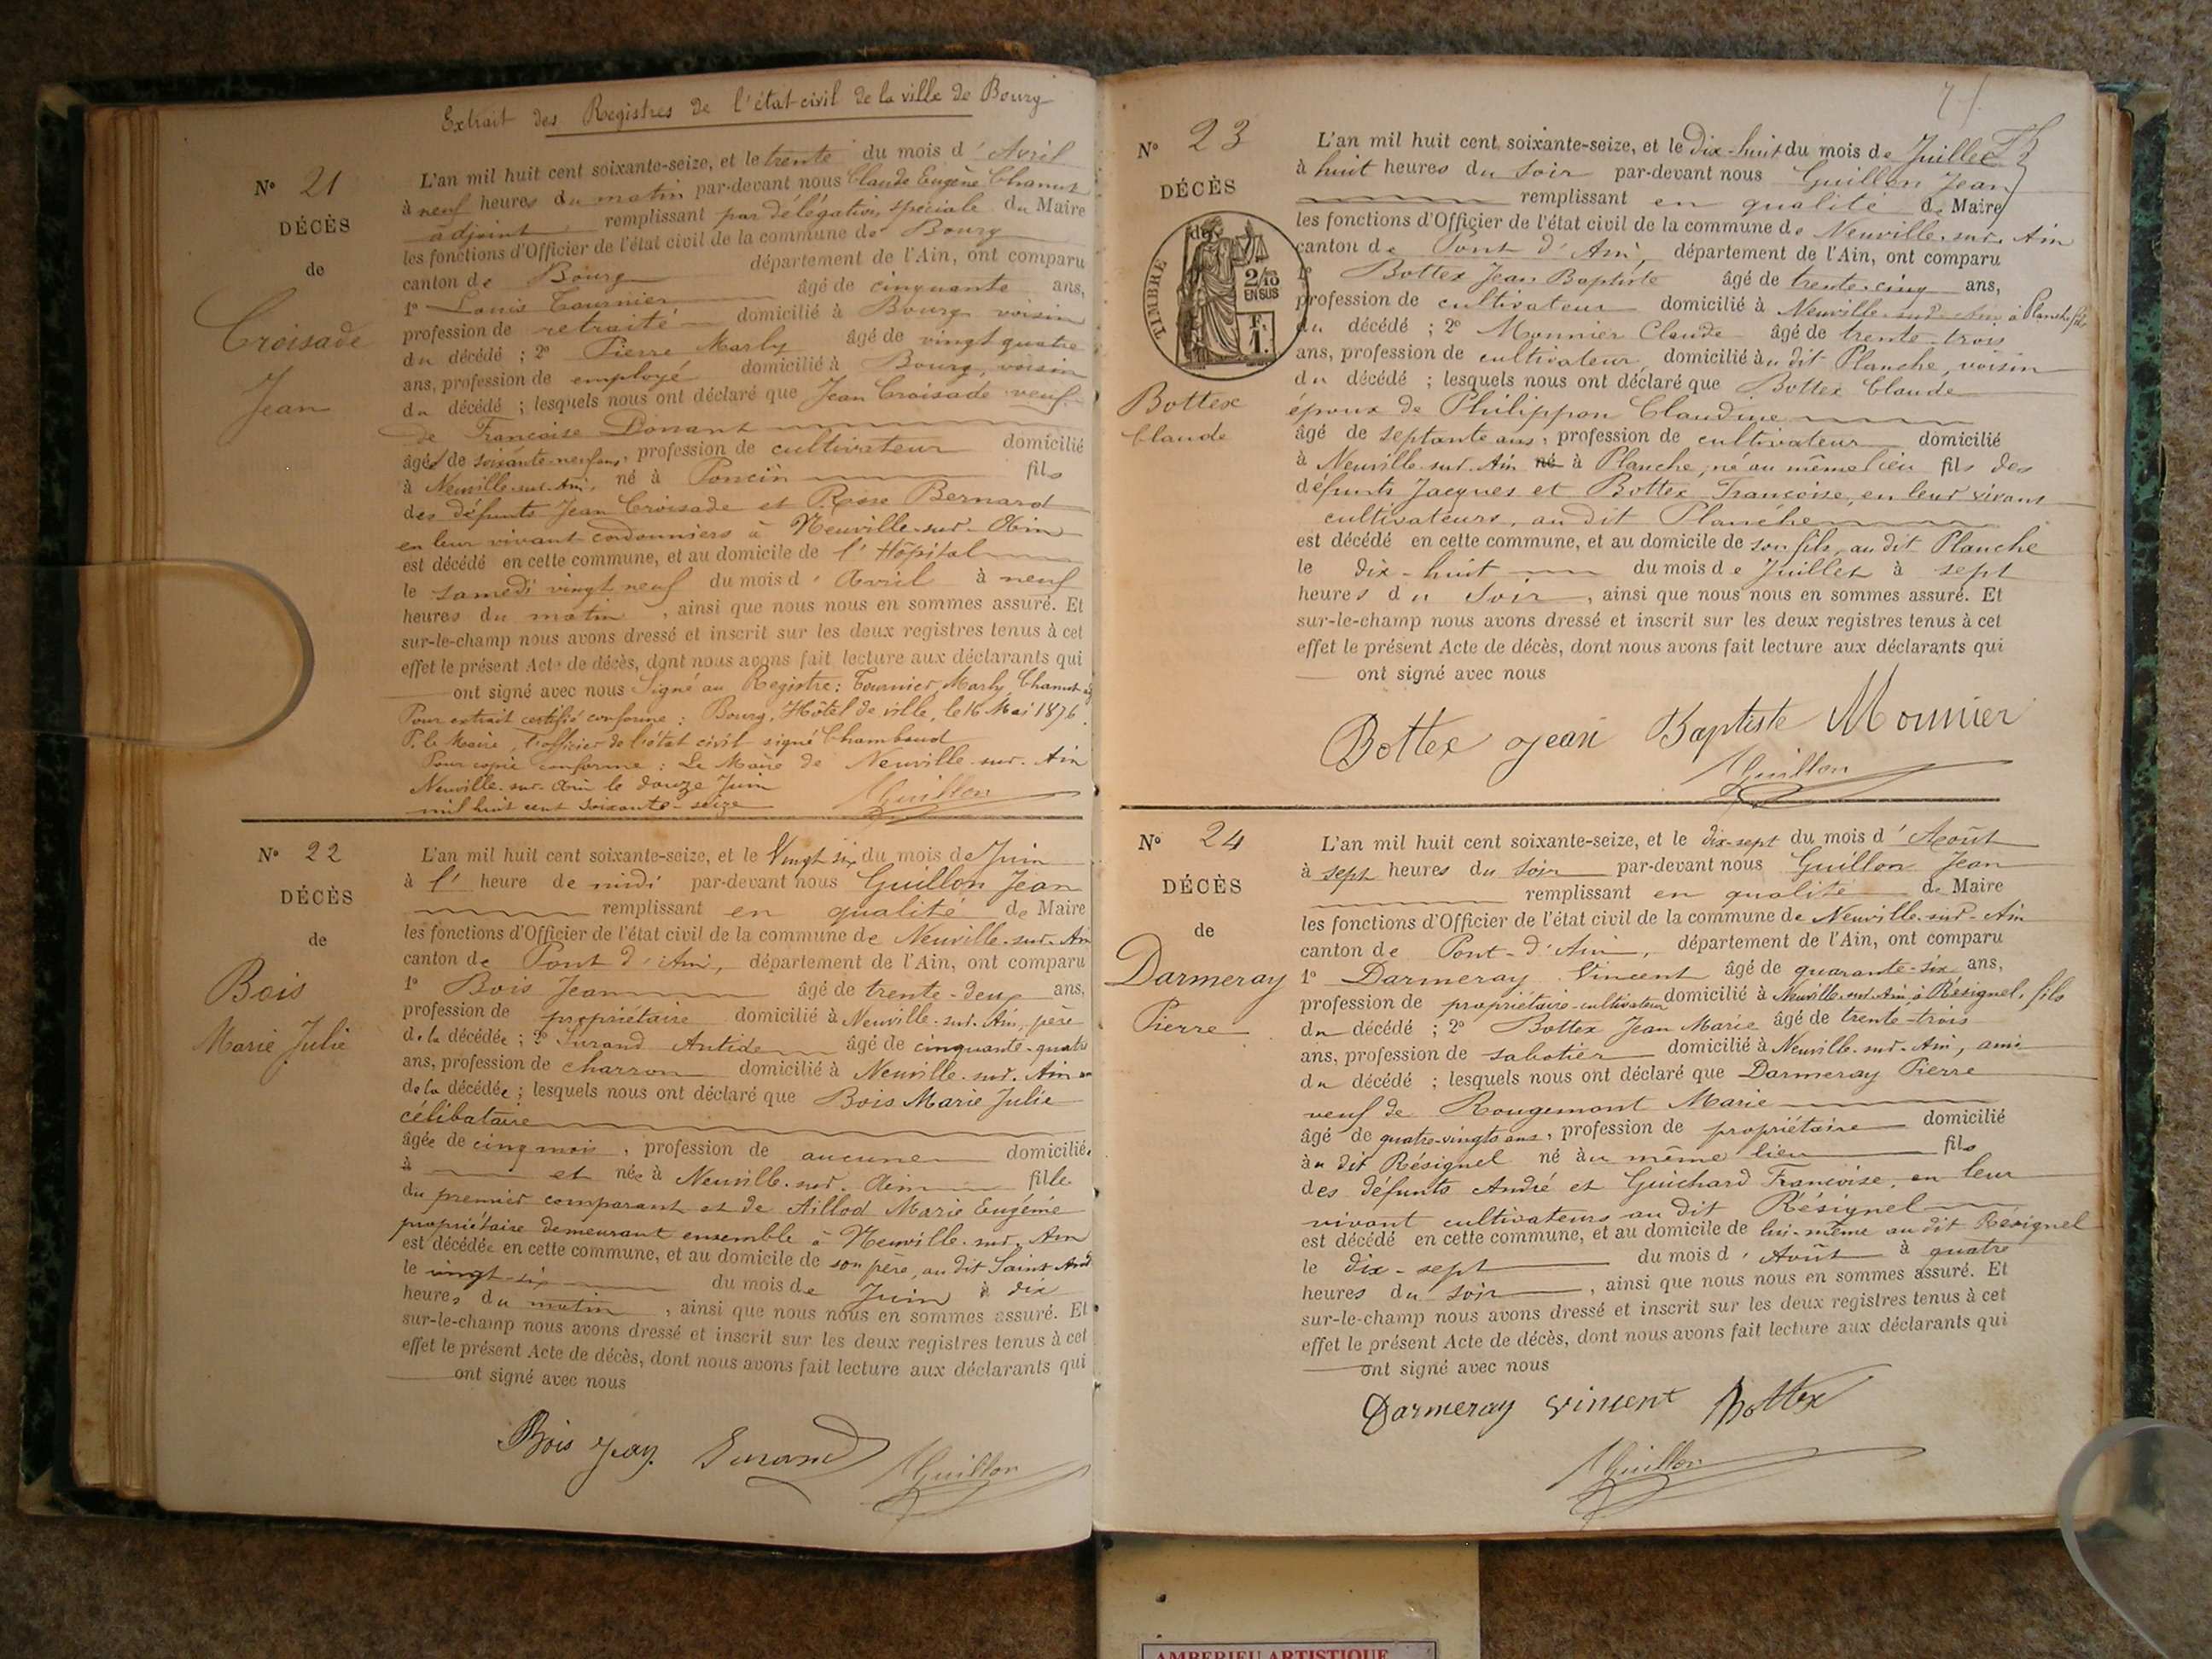 Extrait des Registres de l'état-civil de la ville de Bourg
N° 21
DÉCÈS
de
Croisade
Jean
L'an mil huit cent soixante-seize, et le trente du mois d'Avril
à neuf heures du matin par-devant nous Claude Eugène Chanut
adjoint remplissant par délégation spéciale du Maire
les fonctions d'Officier de l'état civil de la commune de Bourg
canton de Bourg département de l'Ain, ont comparu
1° Louis Tournier âgé de cinquante ans,
profession de retraité domicilié à Bourg voisin
du décédé ; 2° Pierre Marly âgé de vingt quatre
ans, profession de employé domicilié à Bourg, voisin
du décédé ; lesquels nous ont déclaré que Jean Croisade veuf
de Françoise Donant
âgé de soixante-neuf ans, profession de cultivateur domicilié
à Neuville-sur-Ain, né à Poncin fils
des défunts Jean Croisade et Rose Bernard
en leur vivant cordonniers à Neuville-sur-Ain
est décédé en cette commune, et au domicile de l'Hôpital
le samedi vingt neuf du mois d'Avril à neuf
heures du matin, ainsi que nous nous en sommes assuré. Et
sur-le-champ nous avons dressé et inscrit sur les deux registres tenus à cet
effet le présent Acte de décès, dont nous avons fait lecture aux déclarants qui
ont signé avec nous Signé au Registre : Tournier, Marly, Chanut adj
Pour extrait certifié conforme : Bourg, Hôtel de ville, le 16 Mai 1876.
P. le Maire, l'officier de l'état civil signé Chambaud
Pour copie conforme : Le Maire de Neuville-sur-Ain
Neuville-sur-Ain le douze Juin
mil huit cent soixante-seize JGuillon
N° 22
DÉCÈS
de
Bois
Marie Julie
L'an mil huit cent soixante-seize, et le Vingt six du mois de Juin
à l'heure de midi par-devant nous Guillon Jean
remplissant en qualité de Maire
les fonctions d'Officier de l'état civil de la commune de Neuville-sur-Ain
canton de Pont d'Ain, département de l'Ain, ont comparu
1° Bois Jean âgé de trente-deux ans,
profession de propriétaire domicilié à Neuville-sur-Ain, père
de la décédée ; 2° Surand Antide âgé de cinquante-quatre
ans, profession de charron domicilié à Neuville-sur-Ain
de la décédée ; lesquels nous ont déclaré que Bois Marie Julie
célibataire
âgée de cinq mois, profession de aucune domiciliée
à et née à Neuville-sur-Ain fille
du premier comparant et de Aillod Marie Eugénie
propriétaire demeurant ensemble à Neuville-sur-Ain
est décédée en cette commune, et au domicile de son père, au dit Saint And
le vingt-six du mois de Juin à dix
heures du matin, ainsi que nous nous en sommes assuré. Et
sur-le-champ nous avons dressé et inscrit sur les deux registres tenus à cet
effet le présent Acte de décès, dont nous avons fait lecture aux déclarants qui
ont signé avec nous
Bois Jean Surand JGuillon
N° 23
DÉCÈS
de
TIMBRE
2/10
EN SUS
Bottex
Claude
L'an mil huit cent soixante-seize, et le Dix-huit du mois de Juillet
à huit heures du Soir par-devant nous Guillon Jean
remplissant en qualité de Maire
les fonctions d'Officier de l'état civil de la commune de Neuville-sur-Ain
canton de Pont d'Ain, département de l'Ain, ont comparu
1° Bottex Jean Baptiste âgé de trente-cinq ans,
profession de cultivateur domicilié à Neuville-sur-Ain à Planche fils
du décédé ; 2° Mounier Claude âgé de trente-trois
ans, profession de cultivateur, domicilié au dit Planche, voisin
du décédé ; lesquels nous ont déclaré que Bottex Claude
époux de Philippon Claudine
âgé de septante ans, profession de cultivateur domicilié
à Neuville-sur-Ain né à Planche, né au même lieu fils des
défunts Jacques et Bottex Françoise, en leur vivant
cultivateurs, au dit Planche
est décédé en cette commune, et au domicile de son fils, au dit Planche
le dix-huit du mois de Juillet à sept
heures du Soir, ainsi que nous nous en sommes assuré. Et
sur-le-champ nous avons dressé et inscrit sur les deux registres tenus à cet
effet le présent Acte de décès, dont nous avons fait lecture aux déclarants qui
ont signé avec nous
Bottex Jean Baptiste Mounier
JGuillon
N° 24
DÉCÈS
de
Darmeray
Pierre
L'an mil huit cent soixante-seize, et le dix-sept du mois d'Août
à sept heures du Soir par-devant nous Guillon Jean
remplissant en qualité de Maire
les fonctions d'Officier de l'état civil de la commune de Neuville-sur-Ain
canton de Pont-d'Ain, département de l'Ain, ont comparu
1° Darmeray Vincent âgé de quarante-six ans,
profession de propriétaire-cultivateur domicilié à Neuville-sur-Ain, à Résignel, fils
du décédé ; 2° Bottex Jean Marie âgé de trente-trois
ans, profession de sabotier domicilié à Neuville-sur-Ain, ami
du décédé ; lesquels nous ont déclaré que Darmeray Pierre
veuf de Rougemont Marie
âgé de quatre-vingts ans, profession de propriétaire domicilié
au dit Résignel né au même lieu fils
des défunts André et Guichard Françoise, en leur
vivant cultivateurs au dit Résignel
est décédé en cette commune, et au domicile de lui-même au dit Résignel
le dix-sept du mois d'Août à quatre
heures du soir, ainsi que nous nous en sommes assuré. Et
sur-le-champ nous avons dressé et inscrit sur les deux registres tenus à cet
effet le présent Acte de décès, dont nous avons fait lecture aux déclarants qui
ont signé avec nous
Darmeray Vincent Bottex
JGuillon
AMBERIEU ARTISTIQUE